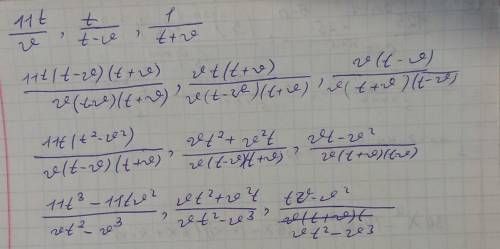 11t/v, t/(t-v), 1/(t+v)
11t(t-v)(t+v)/v(t-v)(t+v), vt(t+v)/v(t-v)(t+v), v(t-v)/v(t+v)(t-v)
11t(t²-v²)/v(t-v)(t+v), vt²+v²t/v(t-v)(t+v), vt-v²/v(t+v)(t-v)
11t³-11tv²/vt²-v³, vt²+v²t/vt²-v³, tv-v²/vt²-v³